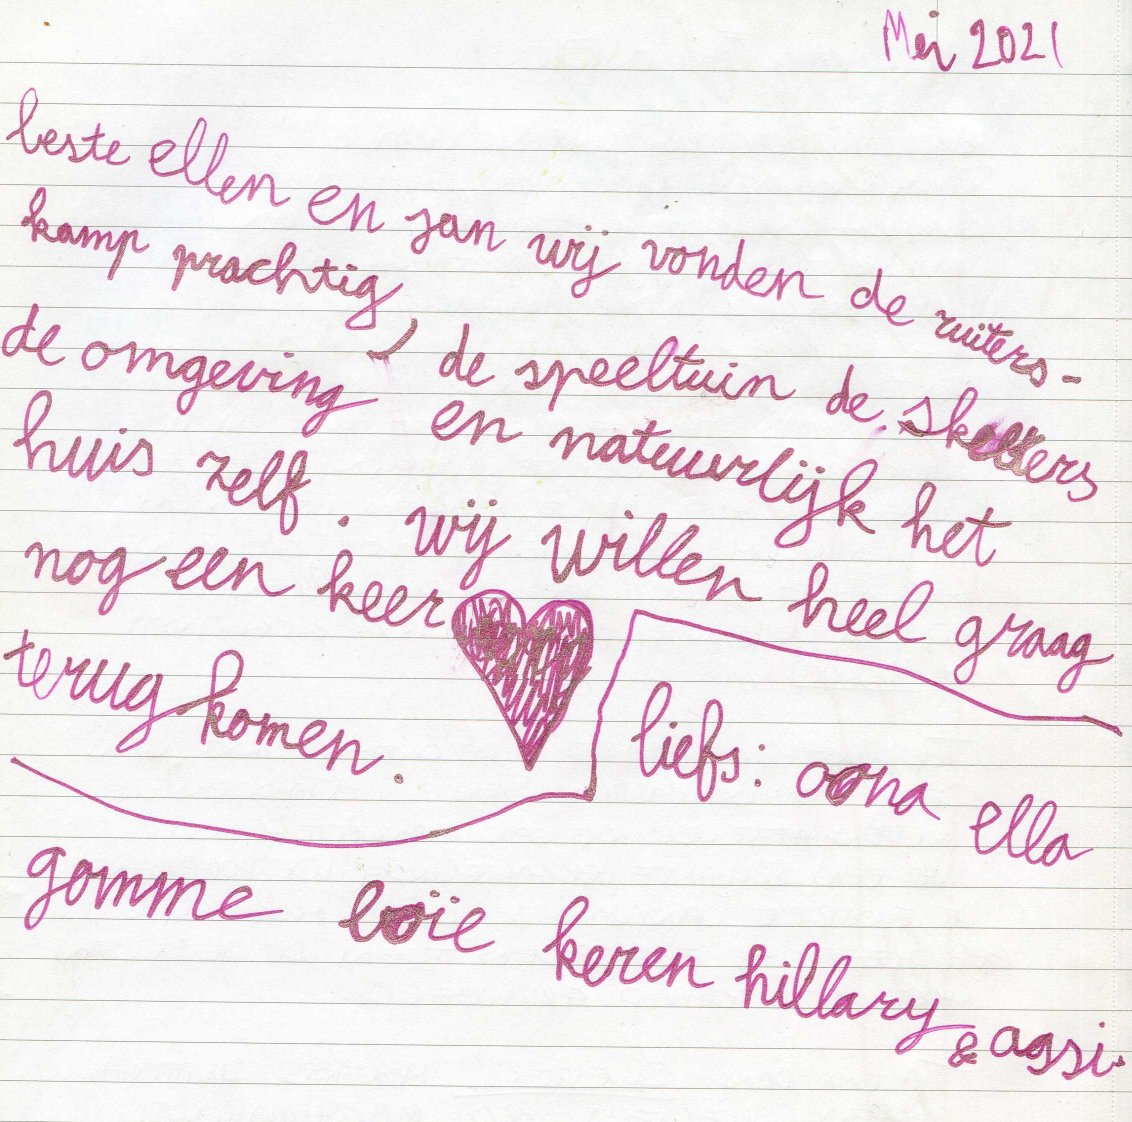 Mei 2021
beste ellen en jan wij vonden de ruiters-
kamp prachtig, de speeltuin de skelters
de omgeving en natuurlijk het
huis zelf. wij willen heel graag
nog een keer
terug komen.
liefs: oona ella
gomme loïe keren hillary
& agsi.